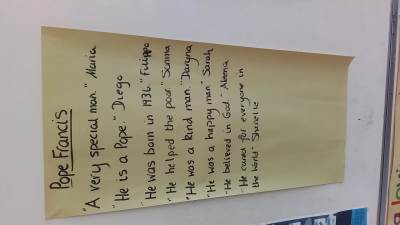 Pope Francis
"A very special man." Maria
"He is a Pope." Diego
"He was born in 1936." Filippo
"He helped the poor."
"He was a kind man." Daryna
"He was a happy man" Sarah
"He believed in God"
"He cared for everyone in
the World"